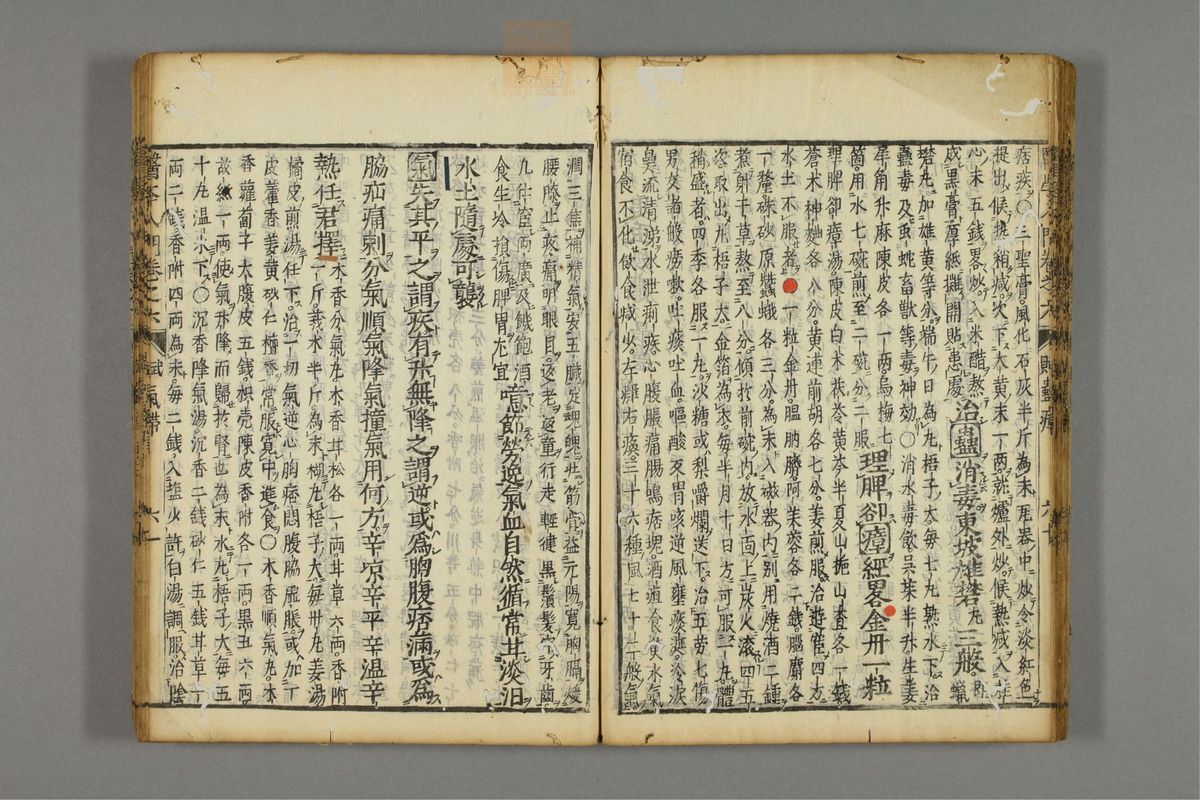 痞疾○三聖膏風化石灰半斤為末瓦器中炒令淡紅色
提出候熱稍減次下大黃末一兩就爐外炒候熱減入桂
心末五錢畧炒入米醋熬
成黑膏厚紙攤開貼患處治蠱消毒東坡雄礬丸三般即蠟
礬丸加雄黃等分端午日為丸梧子大每七丸熟水下治
蠱毒及虫蛇畜獸等毒神効○消水毒飲吳茱半升生姜
犀角升麻陳皮各一兩烏梅七
箇用水七碗煎至二碗分二服理脾卻瘴經畧金丹一粒
理脾卻瘴湯陳皮白木茯苓黃芩半夏山梔山查各一錢
蒼木神曲各八分黃連前胡各七分姜煎服治遊宦四方
水土不服者一粒金丹膃肭臍阿芙蓉各二錢腦麝各
一釐硃砂原蠶蛾各三分為末入磁器內别用燒酒二鍾
煮射干草熬至八分傾於前碗內放水面上炭火滾四五
沸取出丸梧子大金箔為衣每半月十日方可服一丸體
稍盛者四季各服一丸沙糖或梨嚼爛送下治五勞七傷
男女諸般癆嗽吐痰吐血嘔酸反胃咳逆風壅痰涎冷淚
鼻流清涕水泄痢疾心腹脹痛腸鳴痞塊酒食水氣
宿食不化飲食減少左癱右瘓三十六種風七十二般氣
潤三焦補精氣安五臟定魂魄壯筋骨益元陽寬胸膈煖
腰膝止疼痛明眼目返老還童行走輕健黑鬚髮牢牙齒
凡仕宦兩度及饑飽酒
食生冷損傷脾胃尤宜噫節勞逸氣血自然循常甘淡泪
水土隨處可襲
氣失其平之謂疾有升無降之謂逆或為胸腹痞滿或為
脇疝痛刺分氣順氣降氣撞氣用何方辛凉辛平辛温辛
熱任君擇木香分氣丸木香甘松各一兩甘草六兩香附
一斤莪朮半斤為末糊丸梧子大每卅丸姜湯
橘皮煎湯任下治一切氣逆心胸痞悶腹脇虛脹或加丁
皮藿香姜黃砂仁檀香常服寬中進食○木香順氣丸木
香蘿蔔子大腹皮五錢枳殼陳皮香附各一兩黑丑六兩
故紙一兩使氣升降而歸於腎也為末水丸梧子大每五
十丸温水下○沉香降氣湯沉香二錢砂仁五錢甘草一
兩二錢香附四兩為末每二錢入鹽少許白湯調服治陰